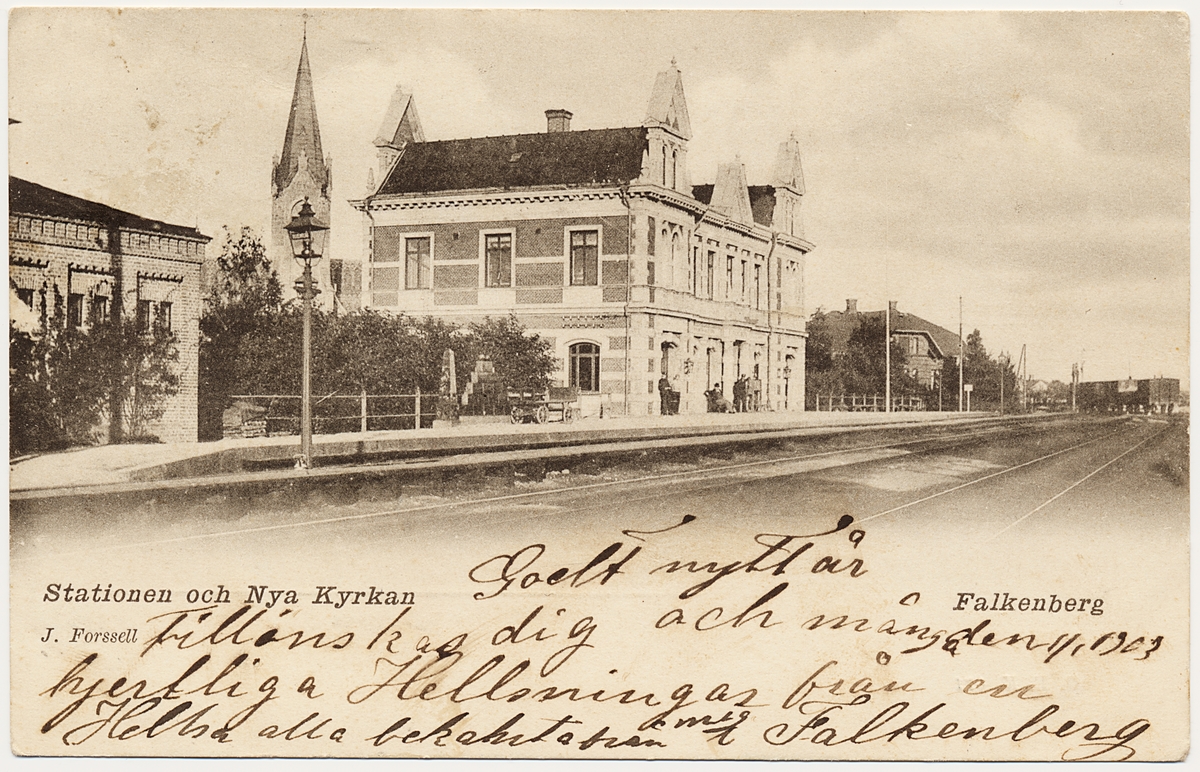 Godt nytt år
Stationen och Nya Kyrkan
Falkenberg
J. Forssell
Tillönskas dig och många
den 1/1 1903
hjertliga Hellsningar från en
Hellsa alla bekanta från mig i Falkenberg